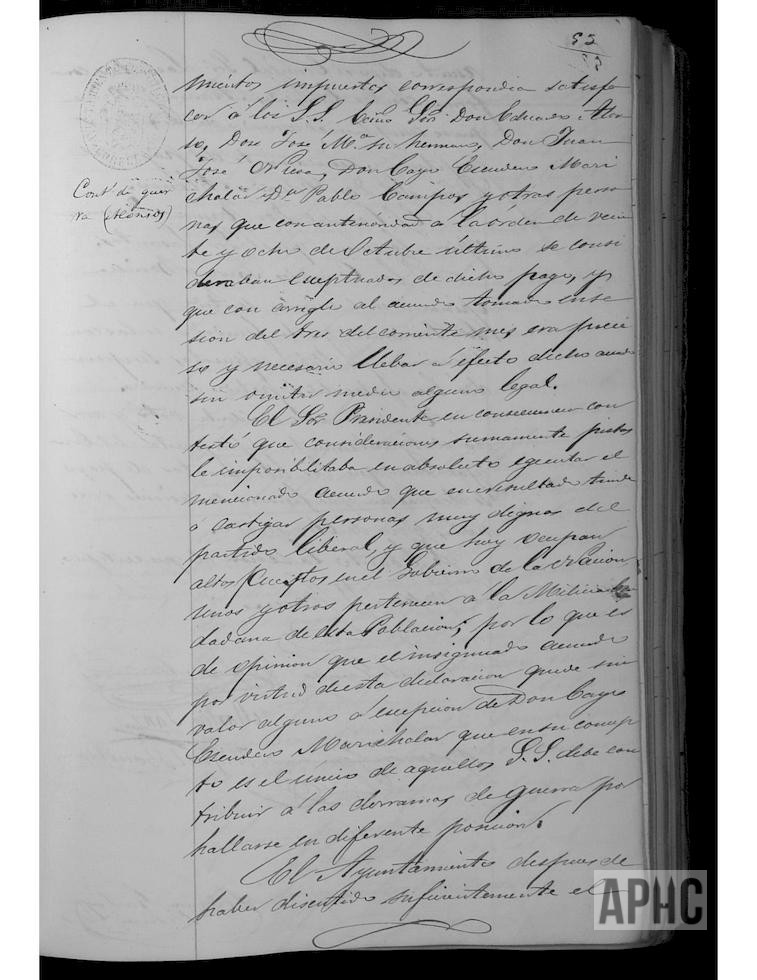 52
53
mientos impuestos correspondia satisfa
cer á los S.S. Excmo Sor Don Eduardo Alon
so, Don José Ma su hermano, Don Juan
José Don Cayo Escudero Mari
chalar Dn Pablo Campos y otras perso
nas que con anterioridad á la orden de vein
te y ocho de Octubre último se consi
deraban exceptuados de dicho pago, y
que con arreglo al acuerdo tomado en se
sion del tres del corriente mes era preci
so y necesario llebar á efecto dicho acuerdo
sin omitir medio alguno legal.
Cont. de guer
ra (atrasos)
El Sor Presidente en consecuencia con
testó que consideraciones sumamente justas
le imposibilitaba en absoluto egecutar el
mencionado acuerdo que en resultado tiende
a castigar personas muy dignas del
partido liberal, y que hoy ocupan
altos Puestos en el Gobierno de la Nacion
unos y otros pertenecen á la Milicia Ciu
dadana de esta Poblacion; por lo que es
de opinion que el insiguiado acuerdo
por virtud de esta declaracion quede sin
valor alguno á escepcion de Don Cayo
Escudero Marichalar que en su concep
to es el único de aquellos S.S. debe con
tribuir á las derramas de guerra por
hallarse en diferente posicion.
El Ayuntamiento despues de
haber discutido suficientemente el
APHC